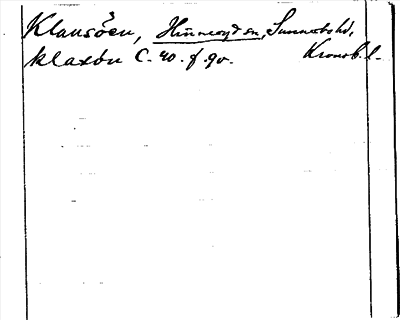 Klausöen, Hinneryd sn, Sunnerbo hd,
klaxön C. 40. f. gv. Kronob. l.